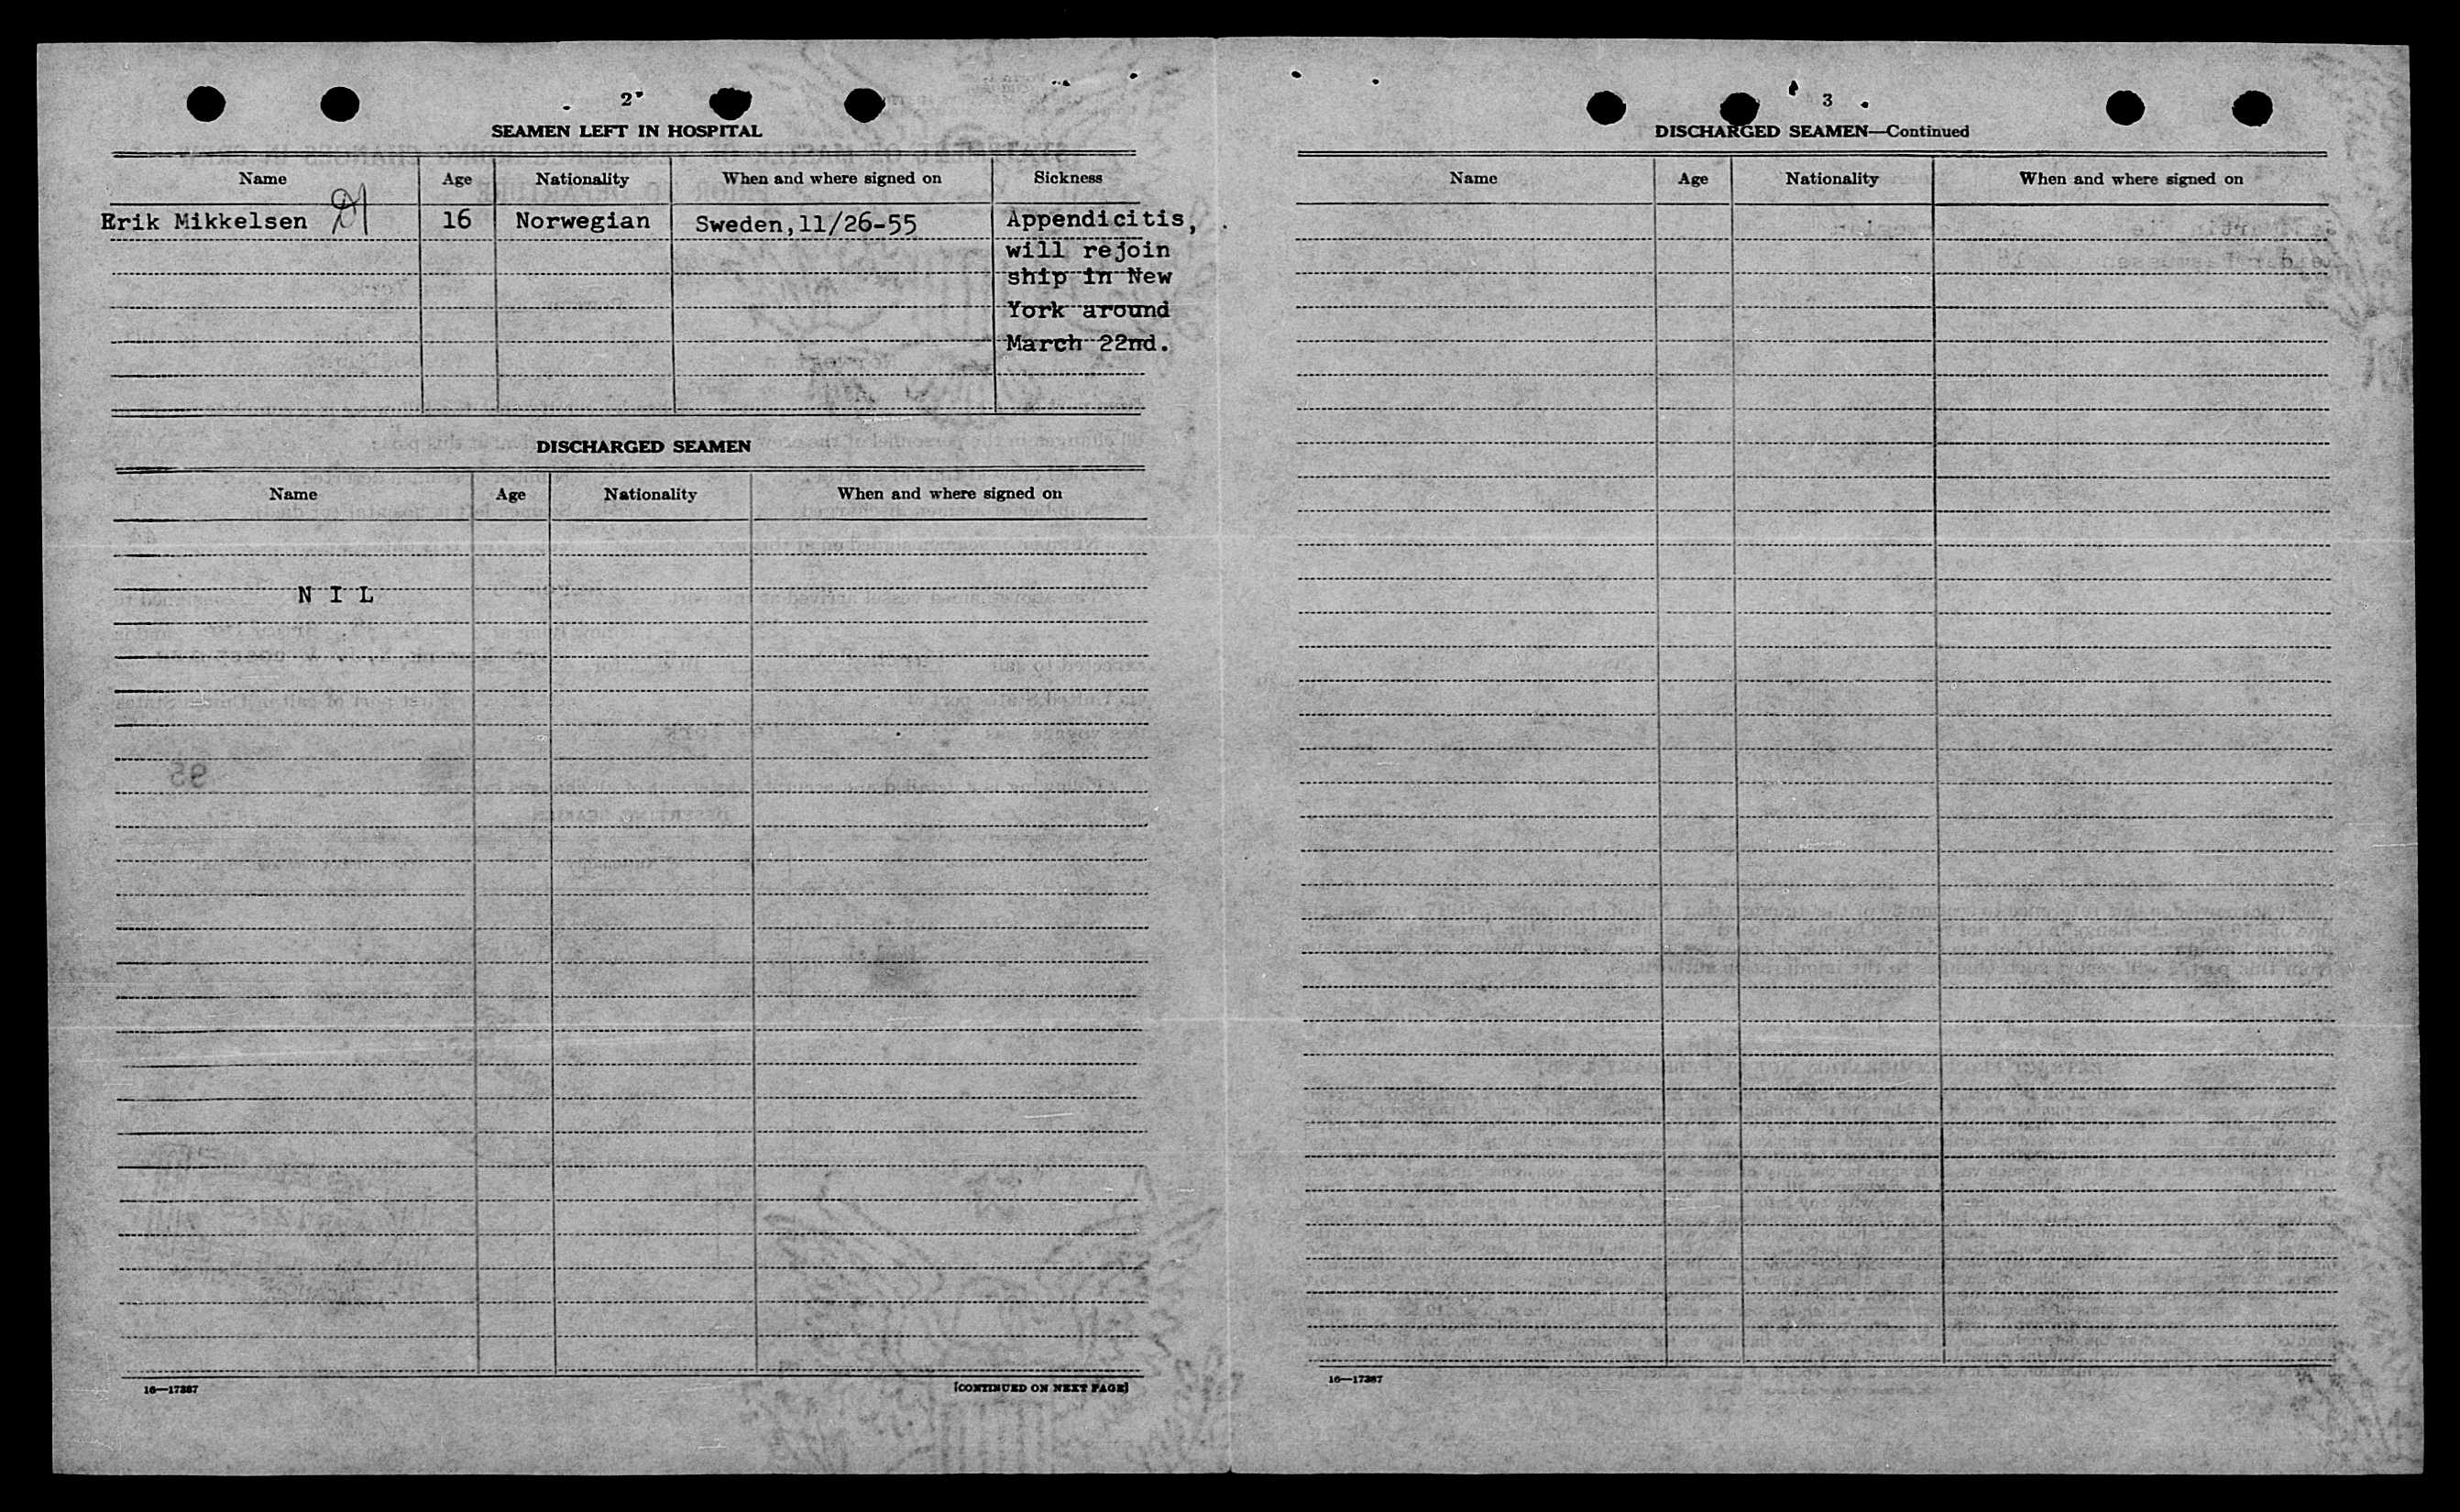 2
SEAMEN LEFT IN HOSPITAL
Name Age Nationality When and where signed on Sickness
Erik Mikkelsen 16 Norwegian Sweden, 11/26-55 Appendicitis,
will rejoin
ship in New
York around
March 22nd.
DISCHARGED SEAMEN
Name Age Nationality When and where signed on
N I L
16—17387
[CONTINUED ON NEXT PAGE]
3
DISCHARGED SEAMEN—Continued
Name Age Nationality When and where signed on
16—17387